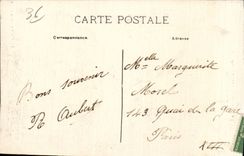 36
CARTE POSTALE
Correspondance
Adresse
Mlle Marguerite
Morel
143 Quai de la gare
Paris
Bons souvenir
R Aubert